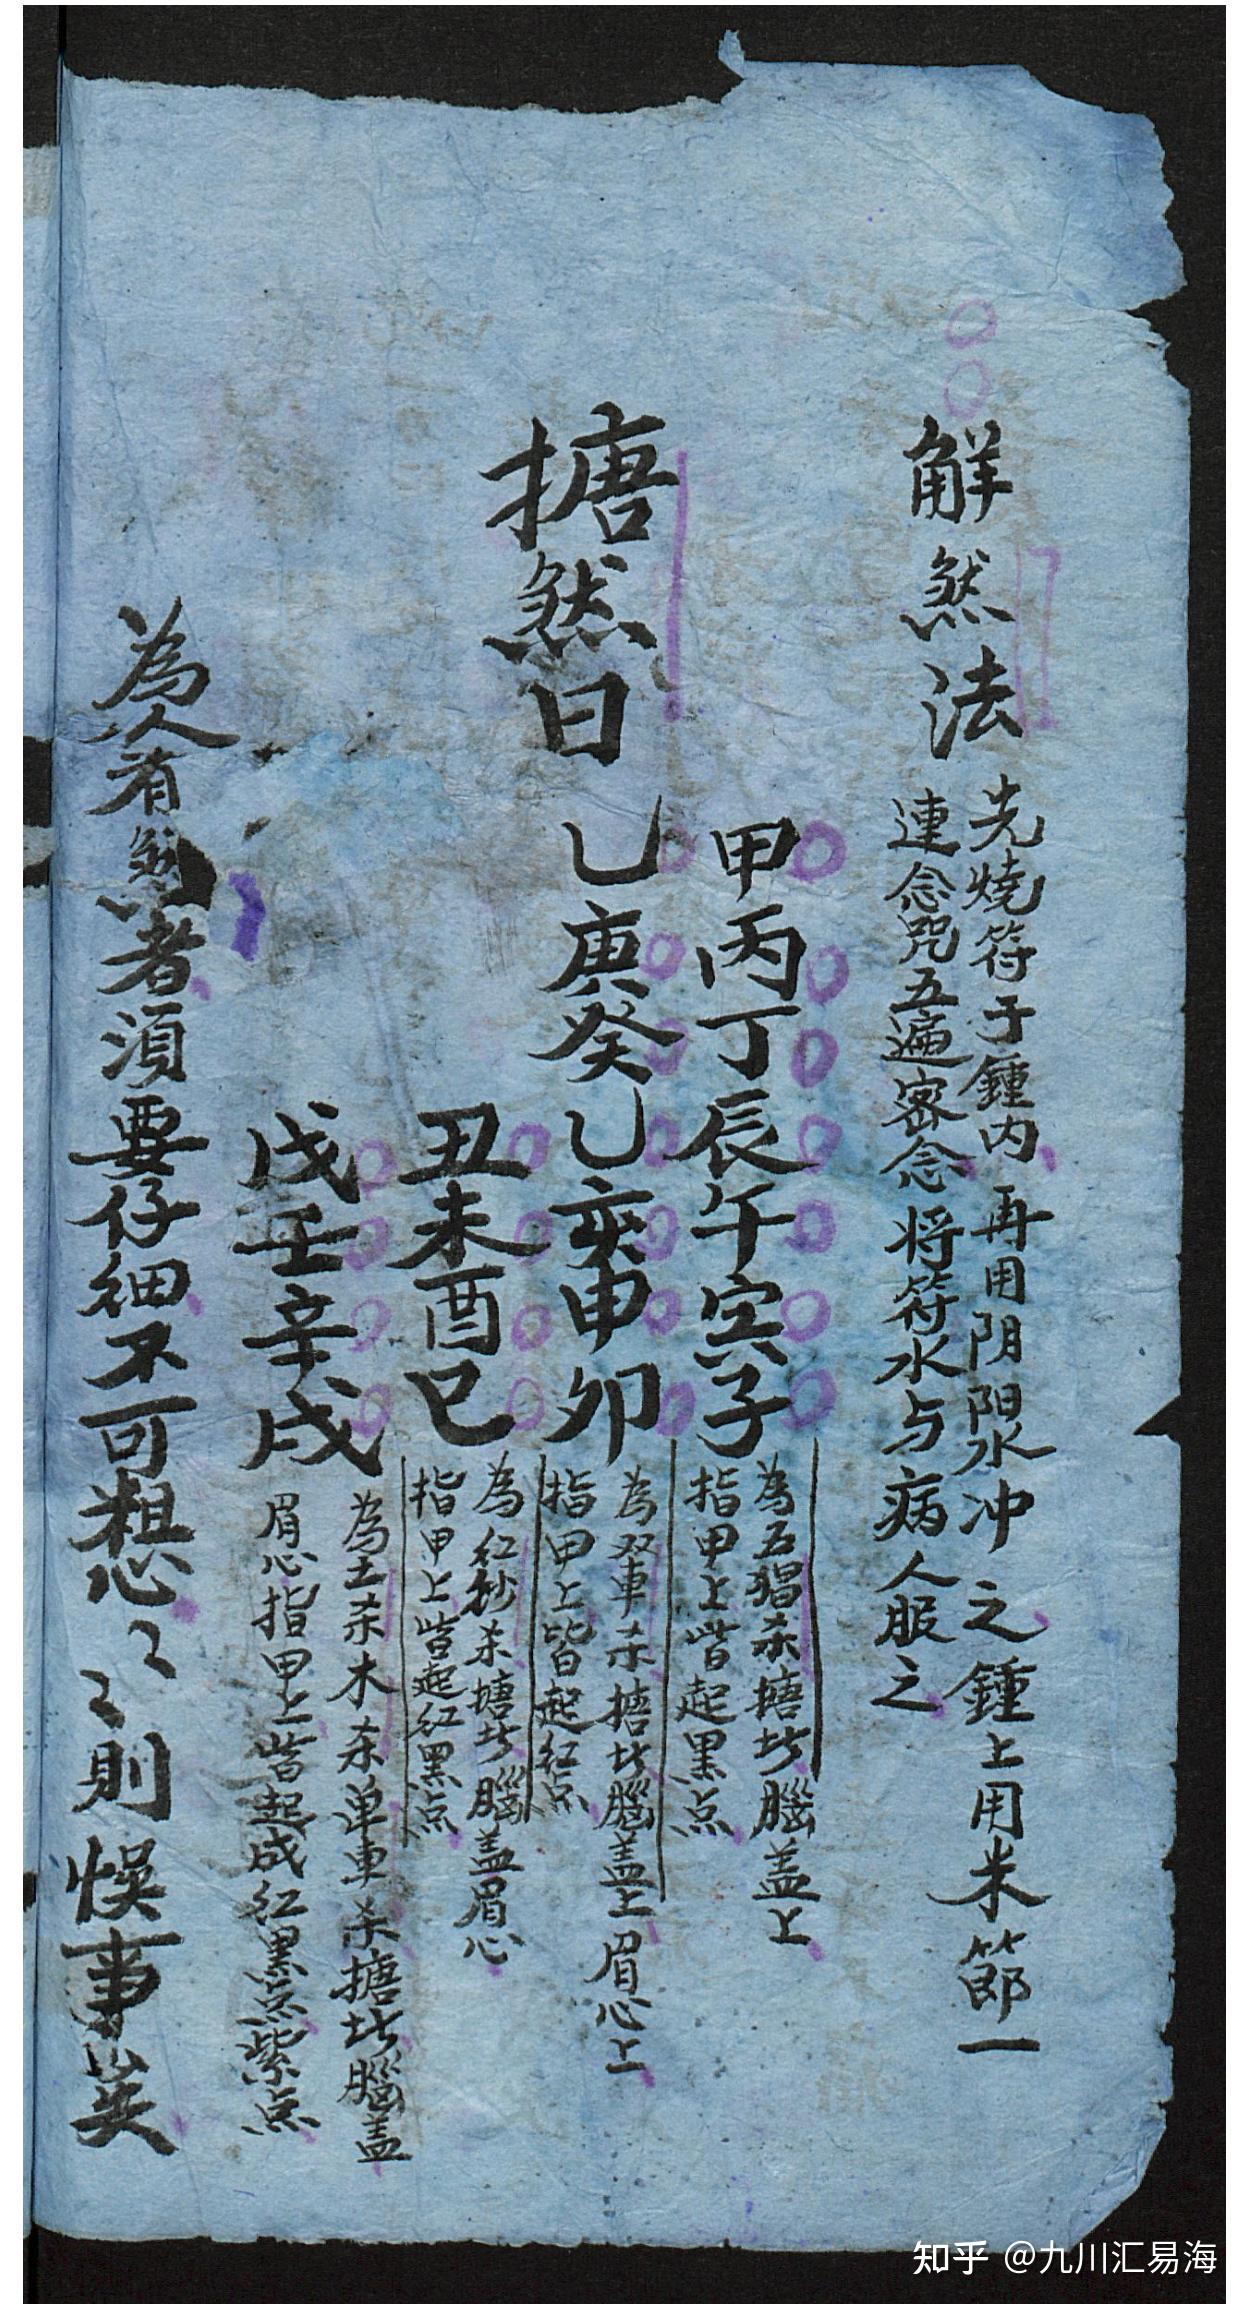 解煞法
先燒符于鍾内再用阴阳水冲之鍾上用米節一
連念咒五遍密念将符水与病人服之
搪煞日
甲丙丁辰午寅子
為五猖杀搪扵腦盖上
指甲上皆起黑点
乙庚癸乙亥申卯
為双車杀搪扵腦盖上眉心上
指甲上皆起红点
丑未酉巳
為红杀搪扵腦盖眉心
指甲上皆起红黑点
戊壬辛戌
為土杀木杀单車杀搪扵腦盖
眉心指甲上皆起成红黑点紫点
為人有煞者須要仔细不可想
則悮事矣
知乎 @九川汇易海